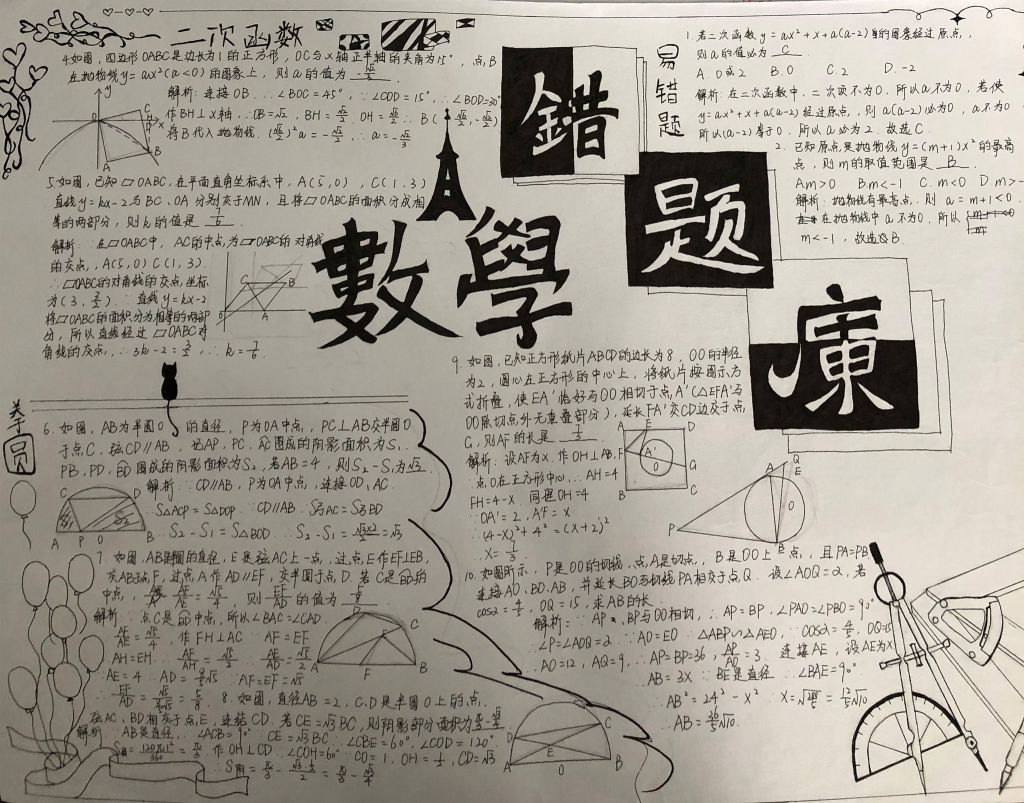 二次函数
4.如图，四边形OABC是边长为1的正方形，OC与x轴正半轴的夹角为15°，点B
在抛物线y=ax²(a<0)的图象上，则a的值为
解析：连接OB.∴∠BOC=45°，∵∠COD=15°，∴∠BOD=30°
作BH⊥x轴，∴OB=√2，BH=√2/2，OH=
将B代入抛物线.
5.如图，已知▱OABC，在平面直角坐标系中，A(5,0)，C(1,3)
直线y=kx-2与BC、OA分别交于MN，且将▱OABC的面积分成相
等的两部分，则k的值是 7/6 .
解析：∵在▱OABC中，AC的中点,为▱OABC的对角线
的交点,,A(5,0)C(1,3).
∴▱OABC的对角线的交点,坐标
为(3,3/2).∵直线y=kx-2
将▱OABC的面积分为相等的两部
分，所以直线经过▱OABC对
角线的交点,∴3k-2=3/2，∴k=7/6.
數學
錯
题
易错题
1.若二次函数y=ax²+x+a(a-2)的图象经过原点，
则a的值必为 C
A.0或2 B.0 C.2 D.-2
解析：在二次函数中，二次项不为0，所以a不为0，若使
y=ax²+x+a(a-2)经过原点，则a(a-2)必为0，a不为0
所以(a-2)等于0，所以a必为2.故选C.
2.已知原点,是抛物线y=(m+1)x²的最高
点，则m的取值范围是 B .
A.m>0 B.m<-1 C.m<0 D.m>-
解析：抛物线有最高点，则a=m+1<0.
在抛物线中a不为0，所以
m<-1，故选B.
关于圆
6.如图，AB为半圆O的直径，P为OA中点,，PC⊥AB交半圆O
于点C，弦CD//AB，记AP、PC、围成的阴影面积为S₁.
PB、PD、围成的阴影面积为S₂，若AB=4，则S₂-S₁为√3.
解析：∵CD//AB，P为OA中点,，连接OD、AC.
∴S△ACP=S△DOP.∵CD//AB.S弓AC=S弓BD
∴S₂-S₁=S△BOD.∴S₂-S₁=√3×2/2=√3
7.如图，AB是圆的直径，E是弦AC上一点，过点E作EF⊥EB，
交AB于点F，过点A作AD//EF，交半圆于点D.若C是的
中点，，则EF/AD的值为
解析：点C是中点，所以∠BAC=∠CAD.
作FH⊥AC ∴AF=EF
AH=EH.
AE=4 ∴AF=EF=√5
8.如图，直径AB=2，C、D是半圆O上的点，
弦AC、BD相交于点E，连结CD.若CE=√3BC，则阴影部分面积为
解析：AB是直径，∴∠ACB=90° CE=√3BC.∴∠CBE=60°，∠COD=120°
作OH⊥CD.∴∠COH=60° CO=1，OH=1/2，CD=√3
9.如图，已知正方形纸片ABCD的边长为8，⊙O的半径
为2，圆心在正方形的中心上，将纸片按图示方
式折叠，使EA'恰好与⊙O相切于点A'(△EFA'与
⊙O除切点外无重叠部分)，延长FA'交CD边及于点
G，则AF的长是 1/3 .
解析：设AF为x.作OH⊥AB，
∵点O在正方形中心，∴AH=4
FH=4-x 同理OH=4
∵OA'=2，A'F=x
∴(4-x)²+4²=(x+2)²
∴x=
10.如图所示，P是⊙O的切线,点A是切点,，B是⊙O上点,，且PA=PB
连接AO、BO、AB，并延长BO与切线PA相交于点Q.设∠AOQ=α，若
cosα=4/5，OQ=15，求AB的长.
解析：∵AP、BP与⊙O相切，∴AP=BP，∠PAO=∠PBO=90°
∴∠P=∠AOQ=α ∴AO=EO ∵cosα=4/5，OQ=15
∴AO=12，AQ=9，∴AP=BP=36，AP/AO=3.连接AE，设AE为x
∴AB=3X ∵BE是直径 ∴∠BAE=90°
∴AB²=24²-x²